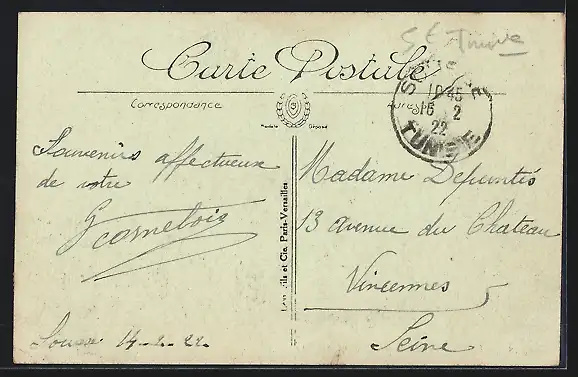 Carte Postale
Correspondance
Adresse
Modèle Déposé
10 45
15 2
22
TUNISIE
Souvenirs affectueux
de votre
Madame Depuntis
13 avenue du Chateau
Vincennes
Seine
Sousse 14-2-22
fils et Cie, Paris-Versailles